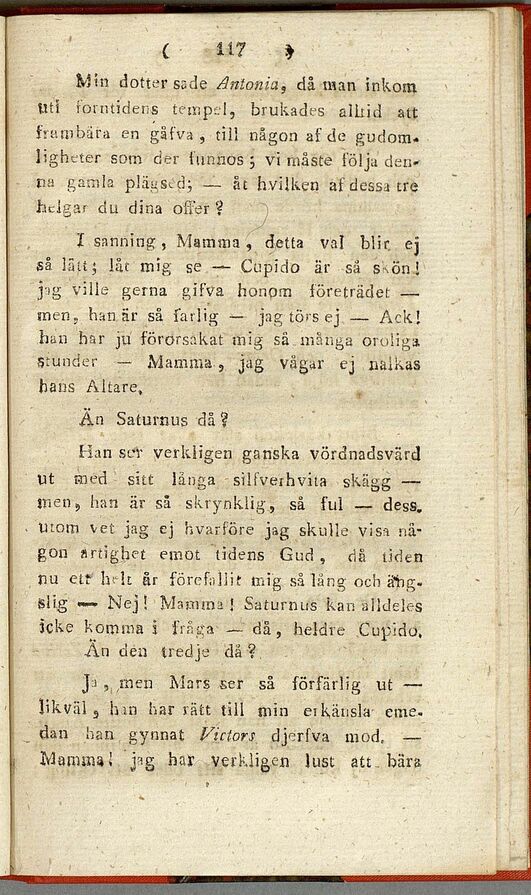 ( 117 )
Min dotter sade Antonia, då man inkom
uti forntidens tempel, brukades alltid att
frambära en gåfva, till någon af de gudom-
ligheter som der funnos; vi måste följa den-
na gamla plägsed; — åt hvilken af dessa tre
helgar du dina offer?
I sanning, Mamma, detta val blir ej
så lätt; låt mig se — Cupido är så skön!
jag ville gerna gifva honom företrädet —
men, han är så farlig — jag törs ej — Ack!
han har ju förorsakat mig så många oroliga
stunder — Mamma, jag vågar ej nalkas
hans Altare.
Än Saturnus då?
Han ser verkligen ganska vördnadsvärd
ut med sitt långa silfverhvita skägg —
men, han är så skrynklig, så ful — dess-
utom vet jag ej hvarföre jag skulle visa nå-
gon artighet emot tidens Gud, då tiden
nu ett helt år förefallit mig så lång och äng-
slig — Nej! Mamma! Saturnus kan alldeles
icke komma i fråga — då, heldre Cupido.
Än den tredje då?
Ja, men Mars ser så förfärlig ut —
likväl, han har rätt till min erkänsla eme-
dan han gynnat Victors djerfva mod. —
Mamma! jag har verkligen lust att bära